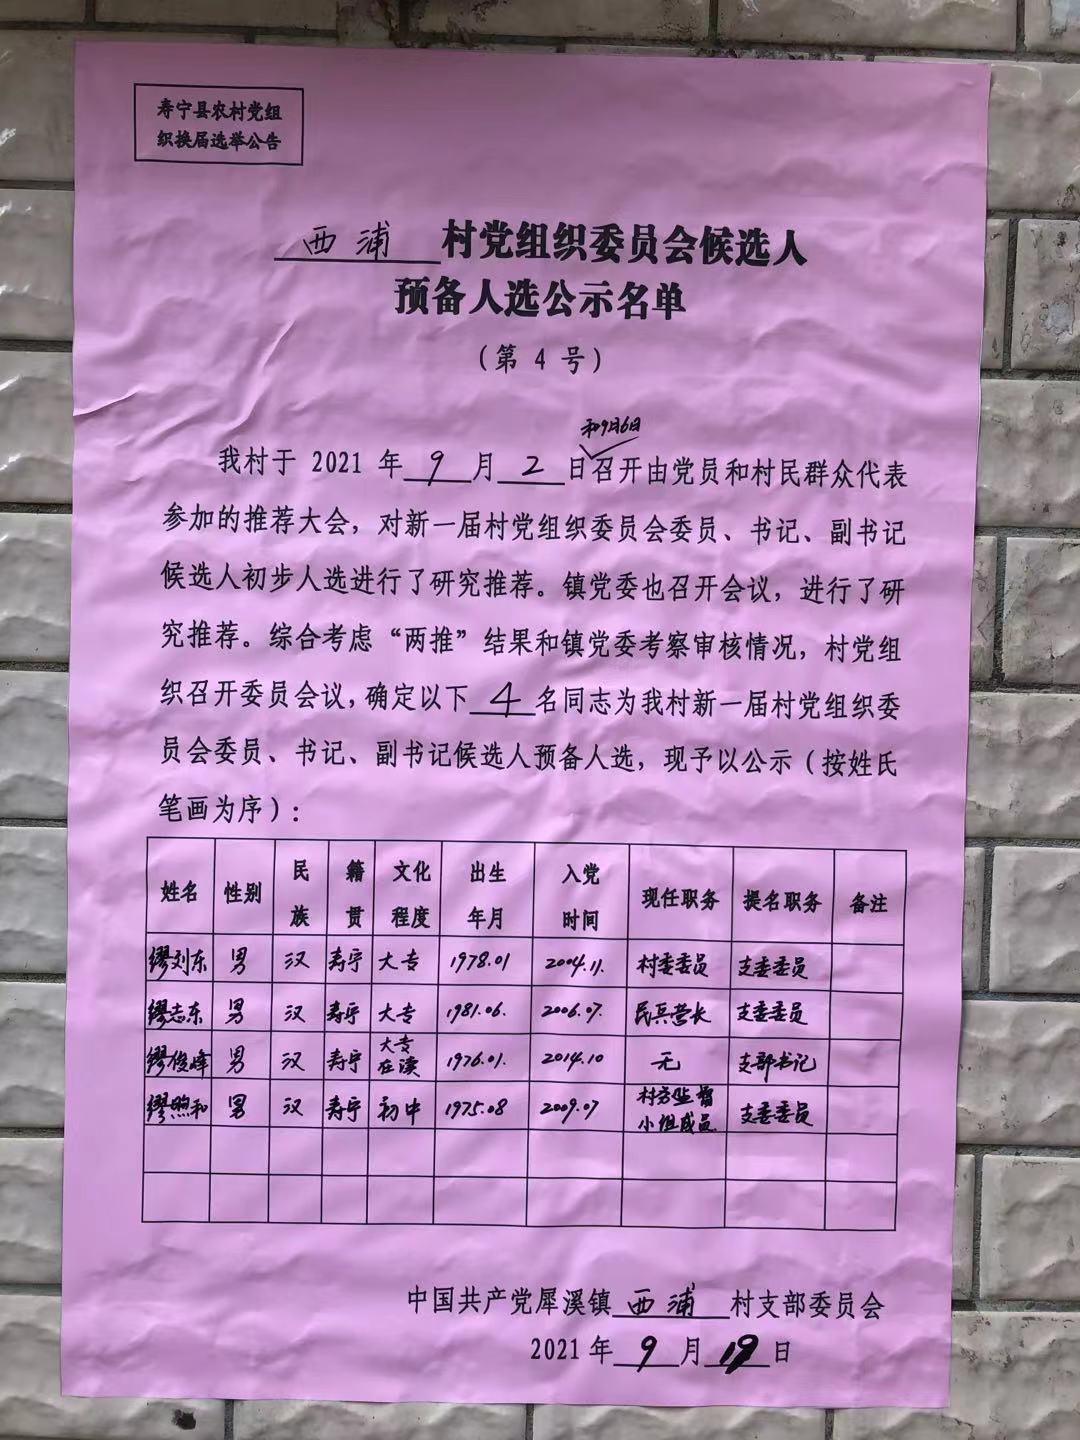 寿宁县农村党组
织换届选举公告
西浦村党组织委员会候选人
预备人选公示名单
(第 4 号)
和9月6日
我村于 2021 年 9 月 2 日召开由党员和村民群众代表
参加的推荐大会，对新一届村党组织委员会委员、书记、副书记
候选人初步人选进行了研究推荐。镇党委也召开会议，进行了研
究推荐。综合考虑“两推”结果和镇党委考察审核情况，村党组
织召开委员会议，确定以下 4 名同志为我村新一届村党组织委
员会委员、书记、副书记候选人预备人选，现予以公示(按姓氏
笔画为序)：
姓名 性别 民族 籍贯 文化程度 出生年月 入党时间 现任职务 提名职务 备注
缪刘东 男 汉 寿宁 大专 1978.01 2004.11. 村委委员 支委委员
缪志东 男 汉 寿宁 大专 1981.06. 2006.07. 民兵营长 支委委员
缪俊峰 男 汉 寿宁 大专在读 1976.01. 2014.10 无 支部书记
缪煦和 男 汉 寿宁 初中 1975.08 2009.07 村务监督小组成员 支委委员
中国共产党犀溪镇西浦村支部委员会
2021 年 9 月 19 日